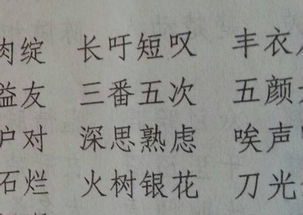 肉绽 长吁短叹 丰衣
益友 三番五次 五颜
户对 深思熟虑 唉声
石烂 火树银花 刀光